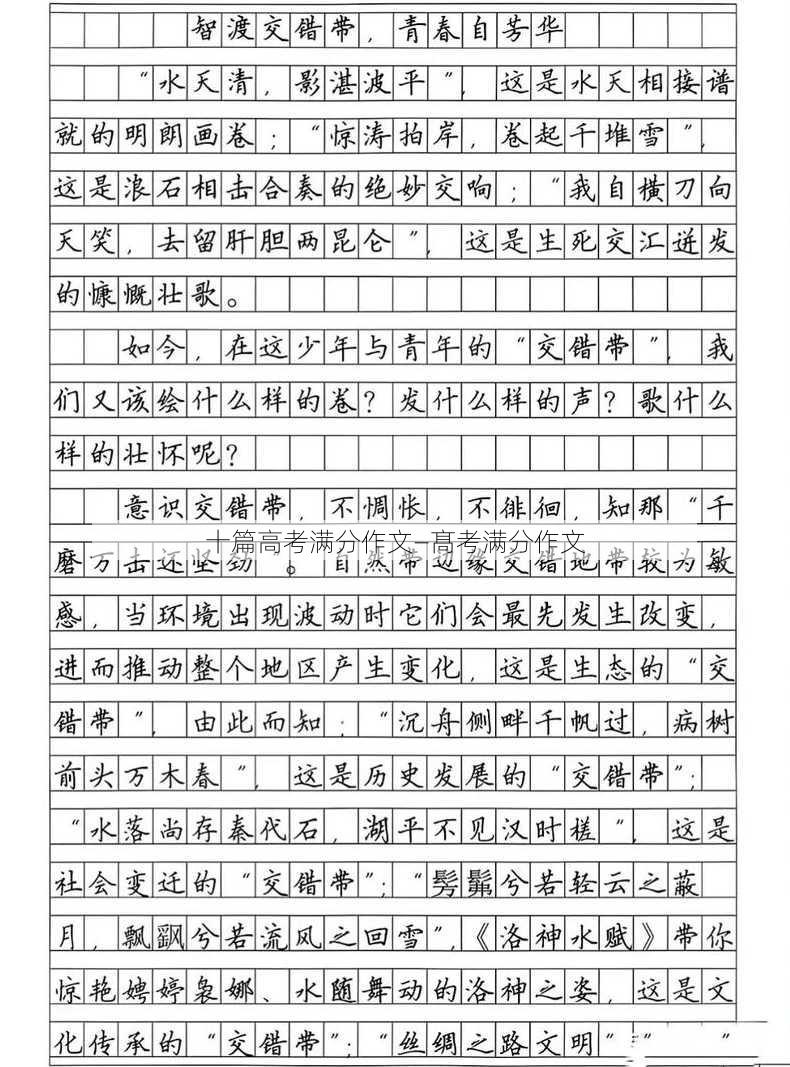 智渡交错带，青春自芳华
“水天清，影湛波平”，这是水天相接谱
就的明朗画卷；“惊涛拍岸，卷起千堆雪”，
这是浪石相击合奏的绝妙交响；“我自横刀向
天笑，去留肝胆两昆仑”，这是生死交汇迸发
的慷慨壮歌。
如今，在这少年与青年的“交错带”，我
们又该绘什么样的卷？发什么样的声？歌什么
样的壮怀呢？
意识交错带，不惆怅，不徘徊，知那“千
十篇高考满分作文_高考满分作文
磨万击还坚劲”。自然带边缘交错地带较为敏
感，当环境出现波动时它们会最先发生改变，
进而推动整个地区产生变化，这是生态的“交
错带”，由此而知：“沉舟侧畔千帆过，病树
前头万木春”，这是历史发展的“交错带”；
“水落尚存秦代石，湖平不见汉时槎”，这是
社会变迁的“交错带”；“髣髴兮若轻云之蔽
月，飘飖兮若流风之回雪”，《洛神水赋》带你
惊艳娉婷袅娜、水随舞动的洛神之姿，这是文
化传承的“交错带”；“丝绸之路文明”“ ”